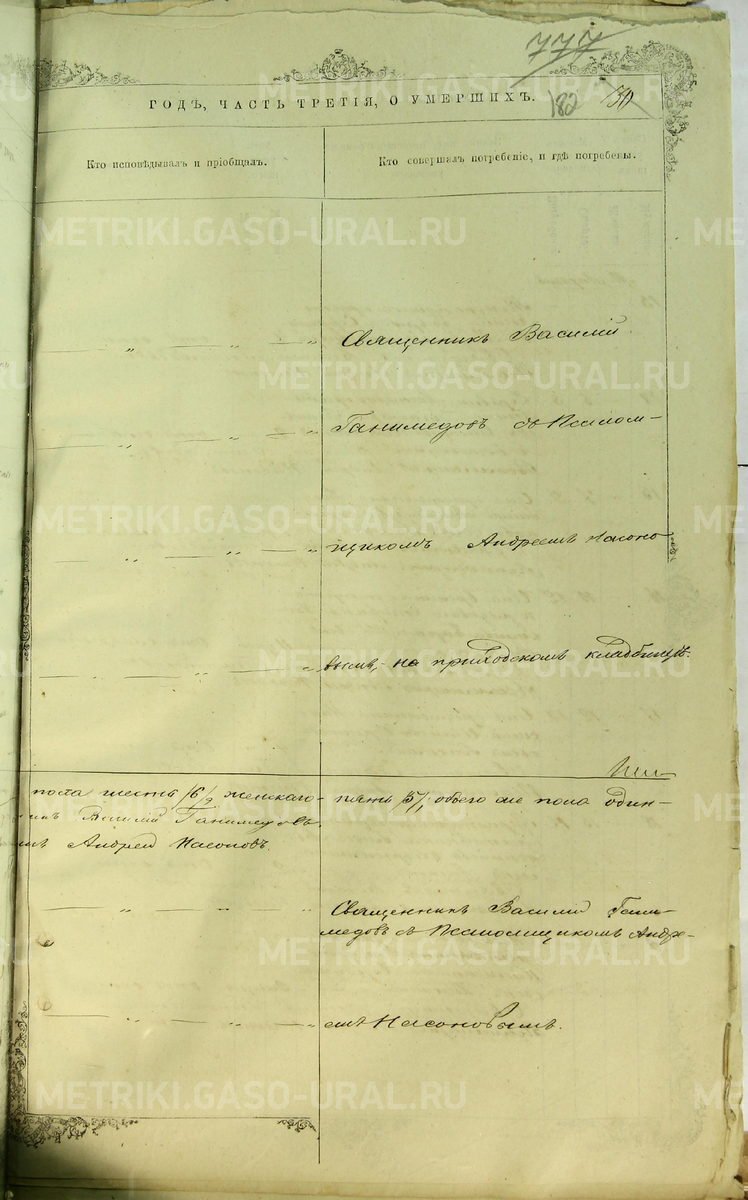 777
182 50
ГОДЪ, ЧАСТЬ ТРЕТІЯ, О УМЕРШИХЪ.
Кто исповѣдывалъ и пріобщалъ.
Кто совершалъ погребеніе, и гдѣ погребены.
Священникъ Василій
Ганимедовъ съ Псалом-
щикомъ Андреемъ Насоно
вымъ, на приходскомъ кладбищѣ.
пола шесть /6/ женскаго- пять /5/, обоего же пола один-
Василій Ганимедовъ.
Андрей Насоновъ.
Священникъ Василій Гани-
медовъ съ Псаломщикомъ Андре-
емъ Насоновымъ.
METRIKI.GASO-URAL.RU